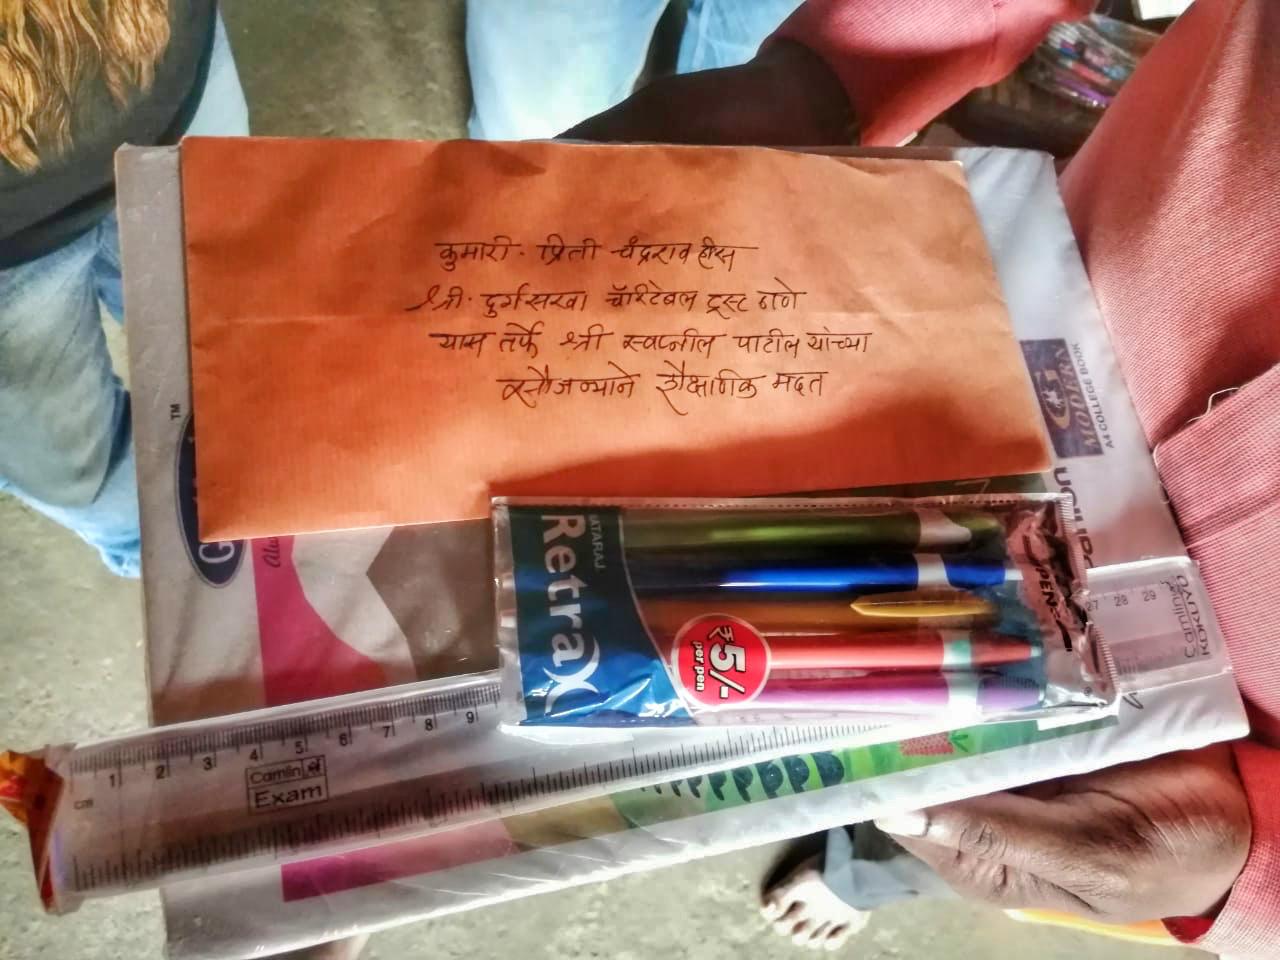 कुमारी. प्रिती चंद्रराव हीस
श्री. दुर्गसखा चॅरिटेबल ट्रस्ट ठाणे
यास तर्फे श्री स्वप्नील पाटील यांच्या
सौजन्याने शैक्षणिक मदत
TM
MODERN
A4 COLLEGE BOOK
NATARAJ
RetraX
₹5/-
per pen
cm 1 2 3 4 5 6 7 8 9
Camlin
Exam
27 28 29
Camlin
KOKUYO